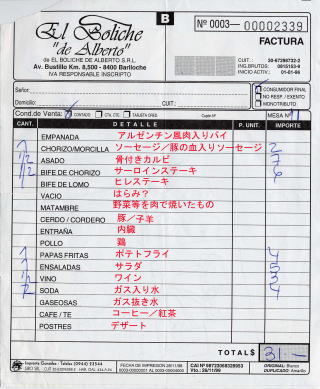 El Boliche
"de Alberto"
de EL BOLICHE DE ALBERTO S.R.L.
Av. Bustillo Km. 8,500 - 8400 Bariloche
IVA RESPONSABLE INSCRIPTO
B
Nº 0003— 00002339
FACTURA
CUIT.: 30-67298732-2
ING.BRUTOS: 0815153-9
INICIO ACTIV.: 01-01-96
Señor:
Domicilio: CUIT.:
CONSUMIDOR FINAL
NO RESP. / EXENTO
MONOTRIBUTO
Cond.de Venta: CONTADO CTA. CTE. TARJETA CRED. MESA Nº 11
CANT. DETALLE P. UNIT. IMPORTE
EMPANADA アルゼンチン風肉入りパイ
1 CHORIZO/MORCILLA ソーセージ／豚の血入りソーセージ 2
1/2 ASADO 骨付きカルビ 7
1/2 BIFE DE CHORIZO サーロインステーキ 6
BIFE DE LOMO ヒレステーキ
VACIO はらみ？
MATAMBRE 野菜等を肉で焼いたもの
CERDO / CORDERO 豚／子羊
ENTRAÑA 内臓
POLLO 鶏
1 PAPAS FRITAS ポテトフライ 4
1 ENSALADAS サラダ 5
1/2 VINO ワイン 3
2 SODA ガス入り水 4
GASEOSAS ガス抜き水
CAFE / TE コーヒー／紅茶
POSTRES デザート
TOTAL $ 31.—
FECHA DE IMPRESION
ORIGINAL: Blanco
DUPLICADO: Amarillo